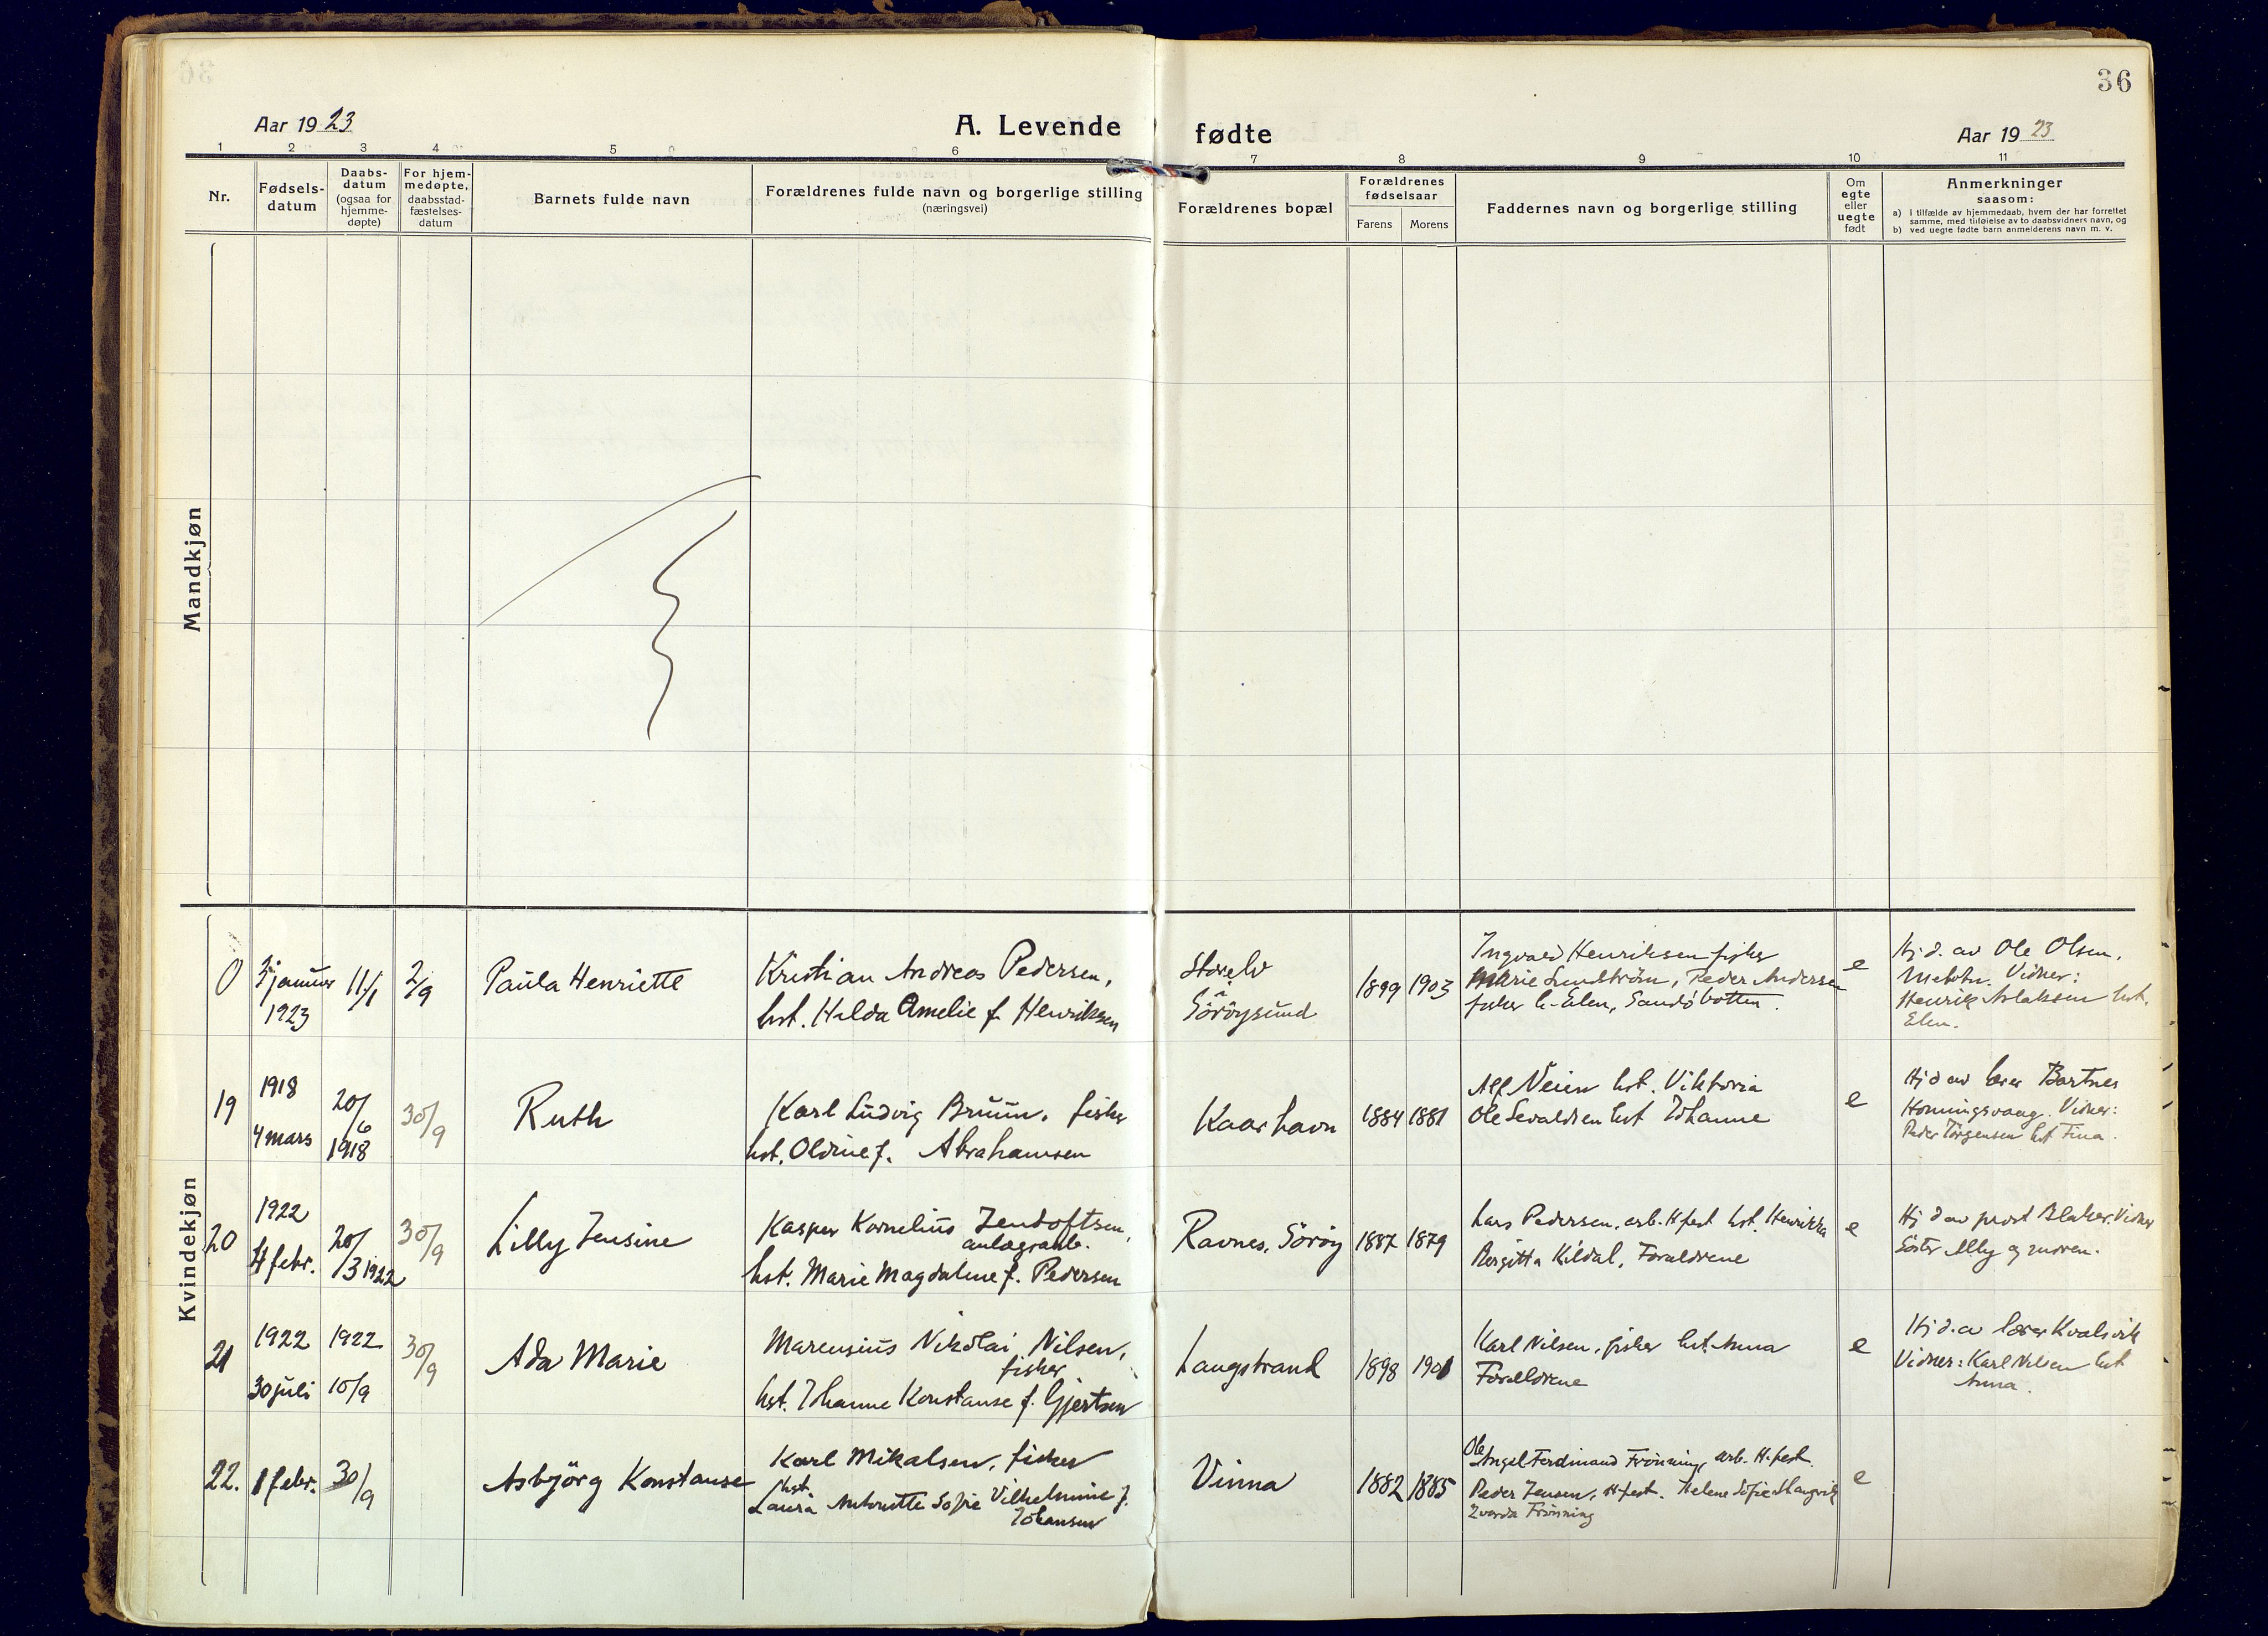 36
Aar 1923
A. Levende fødte
Aar 1923
1 2 3 4 5 6 7 8 9 10 11
Nr.
Fødsels-
datum
Daabs-
datum
(ogsaa for
hjemme-
døpte)
For hjem-
medøpte,
daabsstad-
fæstelses-
datum
Barnets fulde navn
Forældrenes fulde navn og borgerlige stilling
(næringsvei)
Forældrenes bopæl
Forældrenes
fødselsaar
Farens
Morens
Faddernes navn og borgerlige stilling
Om
egte
eller
uegte
født
Anmerkninger
saasom:
a) I tilfælde av hjemmedaab, hvem der har forrettet
samme, med tilføielse av to daabsvidners navn, og
b) ved uegte fødte barn anmelderens navn m. v.
Mandkjøn
Kvindekjøn
0
januar
1923
11/1
2/9
Paula Henriette
Kristian Andreas Pedersen,
hst. Halda Amelie f. Henriksen
Storelv
i
Söröysund
1899
1903
Ingvald Henriksen fisker
Marie Lundström, Peder Andersen
fisker h. Elen, Sandöbotten.
e
Hj.d. av Ole Olsen,
Vidner:
Henrik Aslaksen hst.
Elen.
19
1918
4 mars
20/6
1918
30/9
Ruth
Karl Ludvig Bruun, fisker
hst. Oldine f. Abrahamsen
Kaarhavn
1884
1881
Alf Veien hst. Viktoria
Ole Sevaldsen hst Johanne
e
Hj d av lærer Bartnes
Honningsvaag. Vidner:
Peder Jörgensen hst Fina.
20
1922
4 febr.
20/3 1922
30/9
Lilly Jensine
Kasper Kornelius Zendoftsen,
anlægsarb.
hst. Marie Magdalene f. Pedersen
Ravnes, Söröy
1887
1879
Lars Pedersen, arb. H.fest hst. Henrikka
Bergitta Kildal, Forældrene
e
Hj d av prost Blaker. Vidner
Söster Ally og moren.
21
1922
30 juli
1922
10/9
30/9
Ada Marie
Marensius Nikolai Nilsen,
fisker
hst. Johanne Konstanse f. Gjertsen
Langstrand
1898
1901
Karl Nilsen, fisker hst. Anna
Forældrene
e
Hj.d. av lærer Kvalsvik
Vidner: Karl Nilsen hst
Anna.
22.
1 febr.
30/9
Asbjörg Konstanse
Karl Mikalsen, fisker
hst.
Laura Antonette Sofie Vilhelmine f.
Johansen
Vinna
1882
1885
Ole
Angel Ferdinand Frönning, arb. H.fest.
Peder Jensen, H.fest. Helene Sofie
Frönning
e